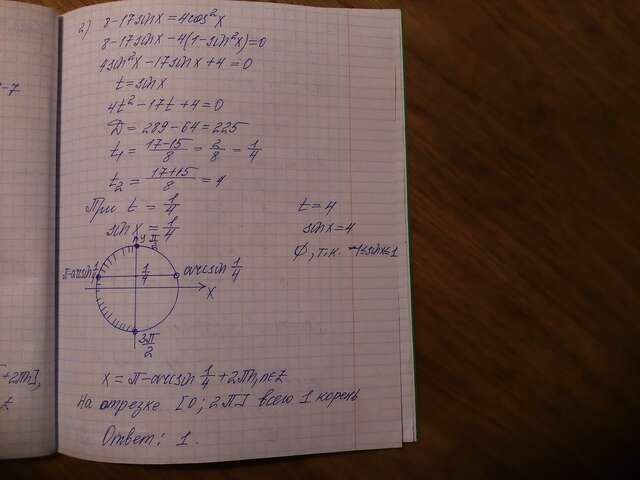 2) 8-17sinx=4cos²x
8-17sinx-4(1-sin²x)=0
4sin²x-17sinx+4=0
t=sinx
4t²-17t+4=0
D=289-64=225
t₁=(17-15)/8=2/8=1/4
t₂=(17+15)/8=4
При t=1/4
sinx=1/4
t=4
sinx=4
∅, т.к. -1≤sinx≤1
y π/2
π-arcsin 1/4
1/4
arcsin 1/4
x
3π/2
x=π-arcsin 1/4+2πn, n∈Z
На отрезке [0; 2π] всего 1 корень
Ответ: 1.
-7
+2πn],